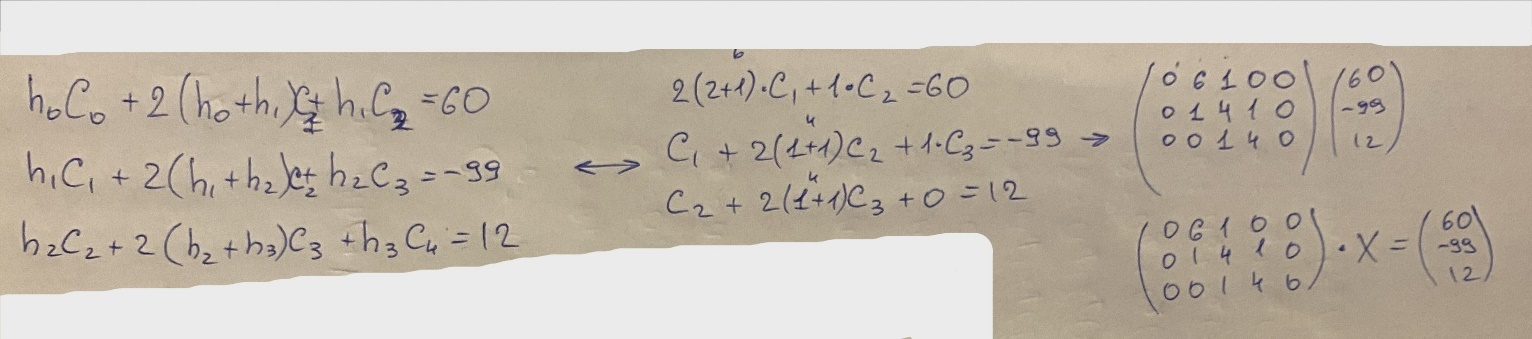 h₀C₀ + 2(h₀+h₁)C₁ + h₁C₂ = 60
h₁C₁ + 2(h₁+h₂)C₂ + h₂C₃ = -99
h₂C₂ + 2(h₂+h₃)C₃ + h₃C₄ = 12
↔
6
2(2+1)·C₁ + 1·C₂ = 60
4
C₁ + 2(1+1)C₂ + 1·C₃ = -99 →
4
C₂ + 2(1+1)C₃ + 0 = 12
(0 6 1 0 0) (60)
(0 1 4 1 0) (-99)
(0 0 1 4 0) (12)
(0 6 1 0 0) (60)
(0 1 4 1 0) · X = (-99)
(0 0 1 4 0) (12)